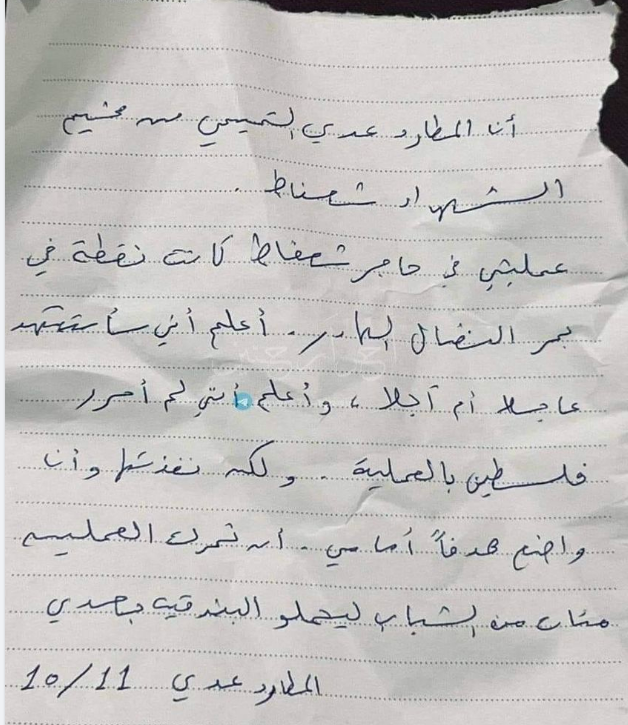 أنا المطارد عدي التميمي من مخيم
الشهداء شعفاط .
عمليتي في حاجز شعفاط كانت نقطة في
بحر النضال الهادر. أعلم أني سأستشهد
عاجلا أم آجلا ، وأعلم أنني لم أحرر
فلسطين بالعملية . ولكن نفذتها وأنا
واضع هدفاً أمامي . أن تحرك العمليه
مئات من الشباب ليحملو البندقيه بعدي
المطارد عدي 10/11